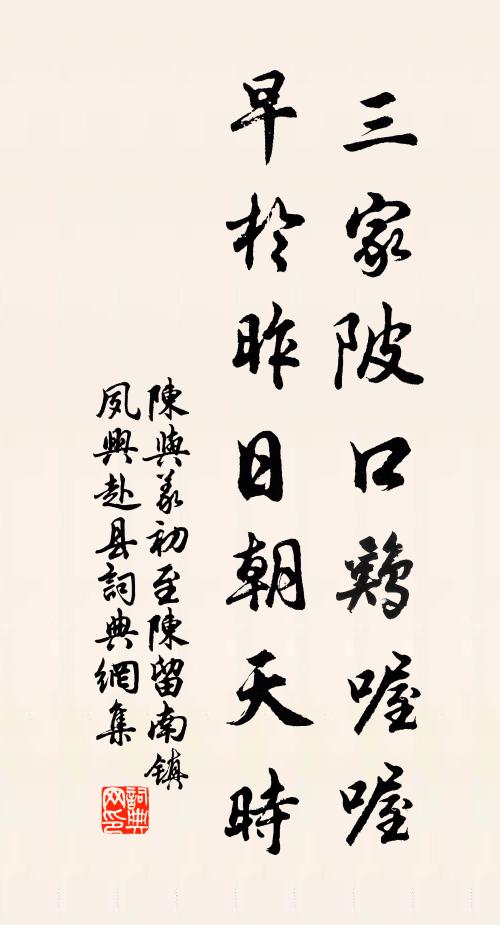 三家陂口鷄喔喔
早於昨日朝天時
陳與义初至陳留南鎮
夙興赴县詞典網集
詞典网印